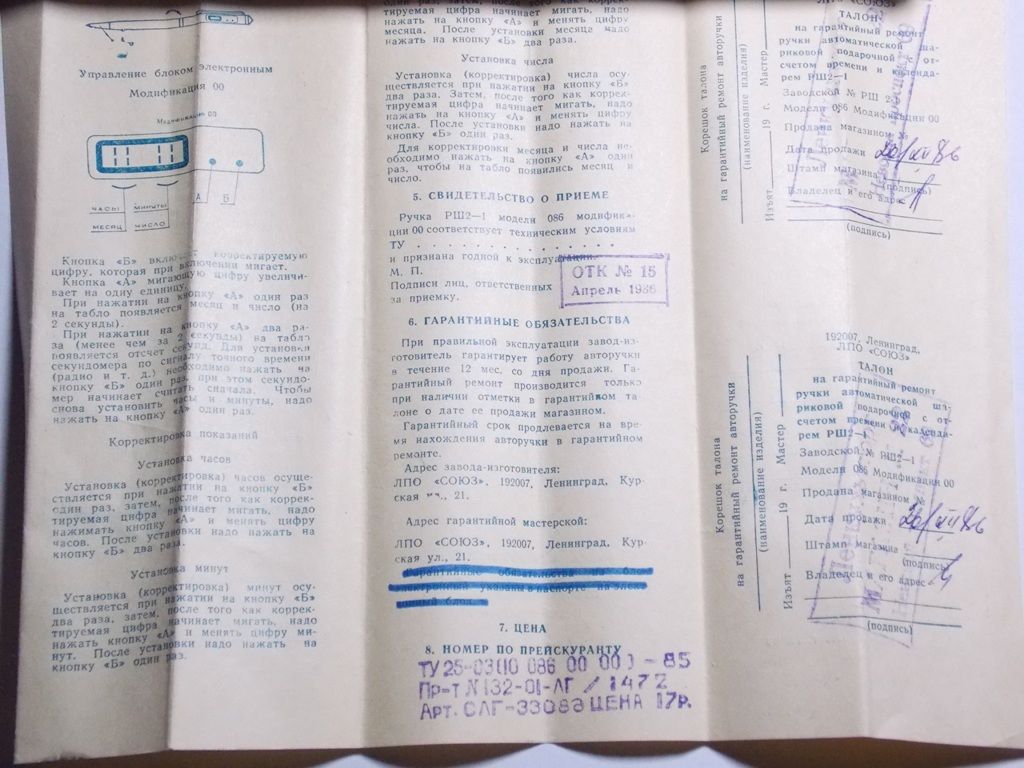 Управление блоком электронным
Модификация 00
Модификация 00
А Б
ЧАСЫ МИНУТЫ
МЕСЯЦ ЧИСЛО
Кнопка «Б» включает корректируемую
цифру, которая при включении мигает.
Кнопка «А» мигающую цифру увеличи-
вает на одну единицу.
При нажатии на кнопку «А» один раз
на табло появляется месяц и число (на
2 секунды).
При нажатии на кнопку «А» два ра-
за (менее чем за 2 секунды) на табло
появляется отсчет секунд. Для установки
секундомера по сигналу точного времени
(радио и т. д.) необходимо нажать на
кнопку «Б» один раз, при этом секундо-
мер начинает считать сначала. Чтобы
снова установить часы и минуты, надо
нажать на кнопку «А» один раз.
Корректировка показаний
Установка часов
Установка (корректировка) часов осуще-
ствляется при нажатии на кнопку «Б»
один раз, затем, после того как коррек-
тируемая цифра начинает мигать, надо
нажимать кнопку «А» и менять цифру
часов. После установки надо нажать на
кнопку «Б» два раза.
Установка минут
Установка (корректировка) минут осу-
ществляется при нажатии на кнопку «Б»
два раза, затем, после того как коррек-
тируемая цифра начинает мигать, надо
нажать кнопку «А» и менять цифру ми-
нут. После установки надо нажать на
кнопку «Б» один раз.
один раз, затем, после того как коррек-
тируемая цифра начинает мигать, надо
нажать на кнопку «А» и менять цифру
месяца. После установки месяца надо
нажать на кнопку «Б» два раза.
Установка числа
Установка (корректировка) числа осу-
ществляется при нажатии на кнопку «Б»
два раза. Затем, после того как коррек-
тируемая цифра начинает мигать, надо
нажать на кнопку «А» и менять цифру
числа. После установки надо нажать на
кнопку «Б» один раз.
Для корректировки месяца и числа не-
обходимо нажать на кнопку «А» один
раз, чтобы на табло появились месяц и
число.
5. СВИДЕТЕЛЬСТВО О ПРИЕМЕ
Ручка РШ2—1 модели 086 модифика-
ции 00 соответствует техническим условиям
ТУ . . . . . . . . . . . . . .
и признана годной к эксплуатации.
М. П.
Подписи лиц, ответственных
за приемку.
ОТК № 15
Апрель 1986
6. ГАРАНТИЙНЫЕ ОБЯЗАТЕЛЬСТВА
При правильной эксплуатации завод-из-
готовитель гарантирует работу авторучки
в течение 12 мес. со дня продажи. Га-
рантийный ремонт производится только
при наличии отметки в гарантийном та-
лоне о дате ее продажи магазином.
Гарантийный срок продлевается на вре-
мя нахождения авторучки в гарантийном
ремонте.
Адрес завода-изготовителя:
ЛПО «СОЮЗ», 192007, Ленинград, Кур-
ская ул., 21.
Адрес гарантийной мастерской:
ЛПО «СОЮЗ», 192007, Ленинград, Кур-
ская ул., 21.
Гарантийные обязательства на блок
электронный указаны в паспорте на элек-
тронный блок.
7. ЦЕНА
8. НОМЕР ПО ПРЕЙСКУРАНТУ
ТУ 25-03(10 086 00 00) - 85
Пр-т N 132-01-ЛГ / 1472
Арт. САГ-33083 ЦЕНА 17р.
Корешок талона
на гарантийный ремонт авторучки
(наименование изделия)
Изъят 19 г. Мастер
ЛПО «СОЮЗ»
ТАЛОН
на гарантийный ремонт
ручки автоматической ша-
риковой подарочной с от-
счетом времени и календа-
рем РШ2—1
Заводской № РШ 2—1
Модели 086 Модификации 00
Продана магазином №
Дата продажи 20/XII 86
Штамп магазина
(подпись)
Владелец и его адрес
(подпись)
Корешок талона
на гарантийный ремонт авторучки
(наименование изделия)
Изъят 19 г. Мастер
192007, Ленинград,
ЛПО «СОЮЗ»
ТАЛОН
на гарантийный ремонт
ручки автоматической ша-
риковой подарочной с от-
счетом времени и календа-
рем РШ2—1
Заводской № РШ2—1
Модели 086 Модификации 00
Продана магазином №
Дата продажи 20/XII 86
Штамп магазина
(подпись)
Владелец и его адрес
(подпись)